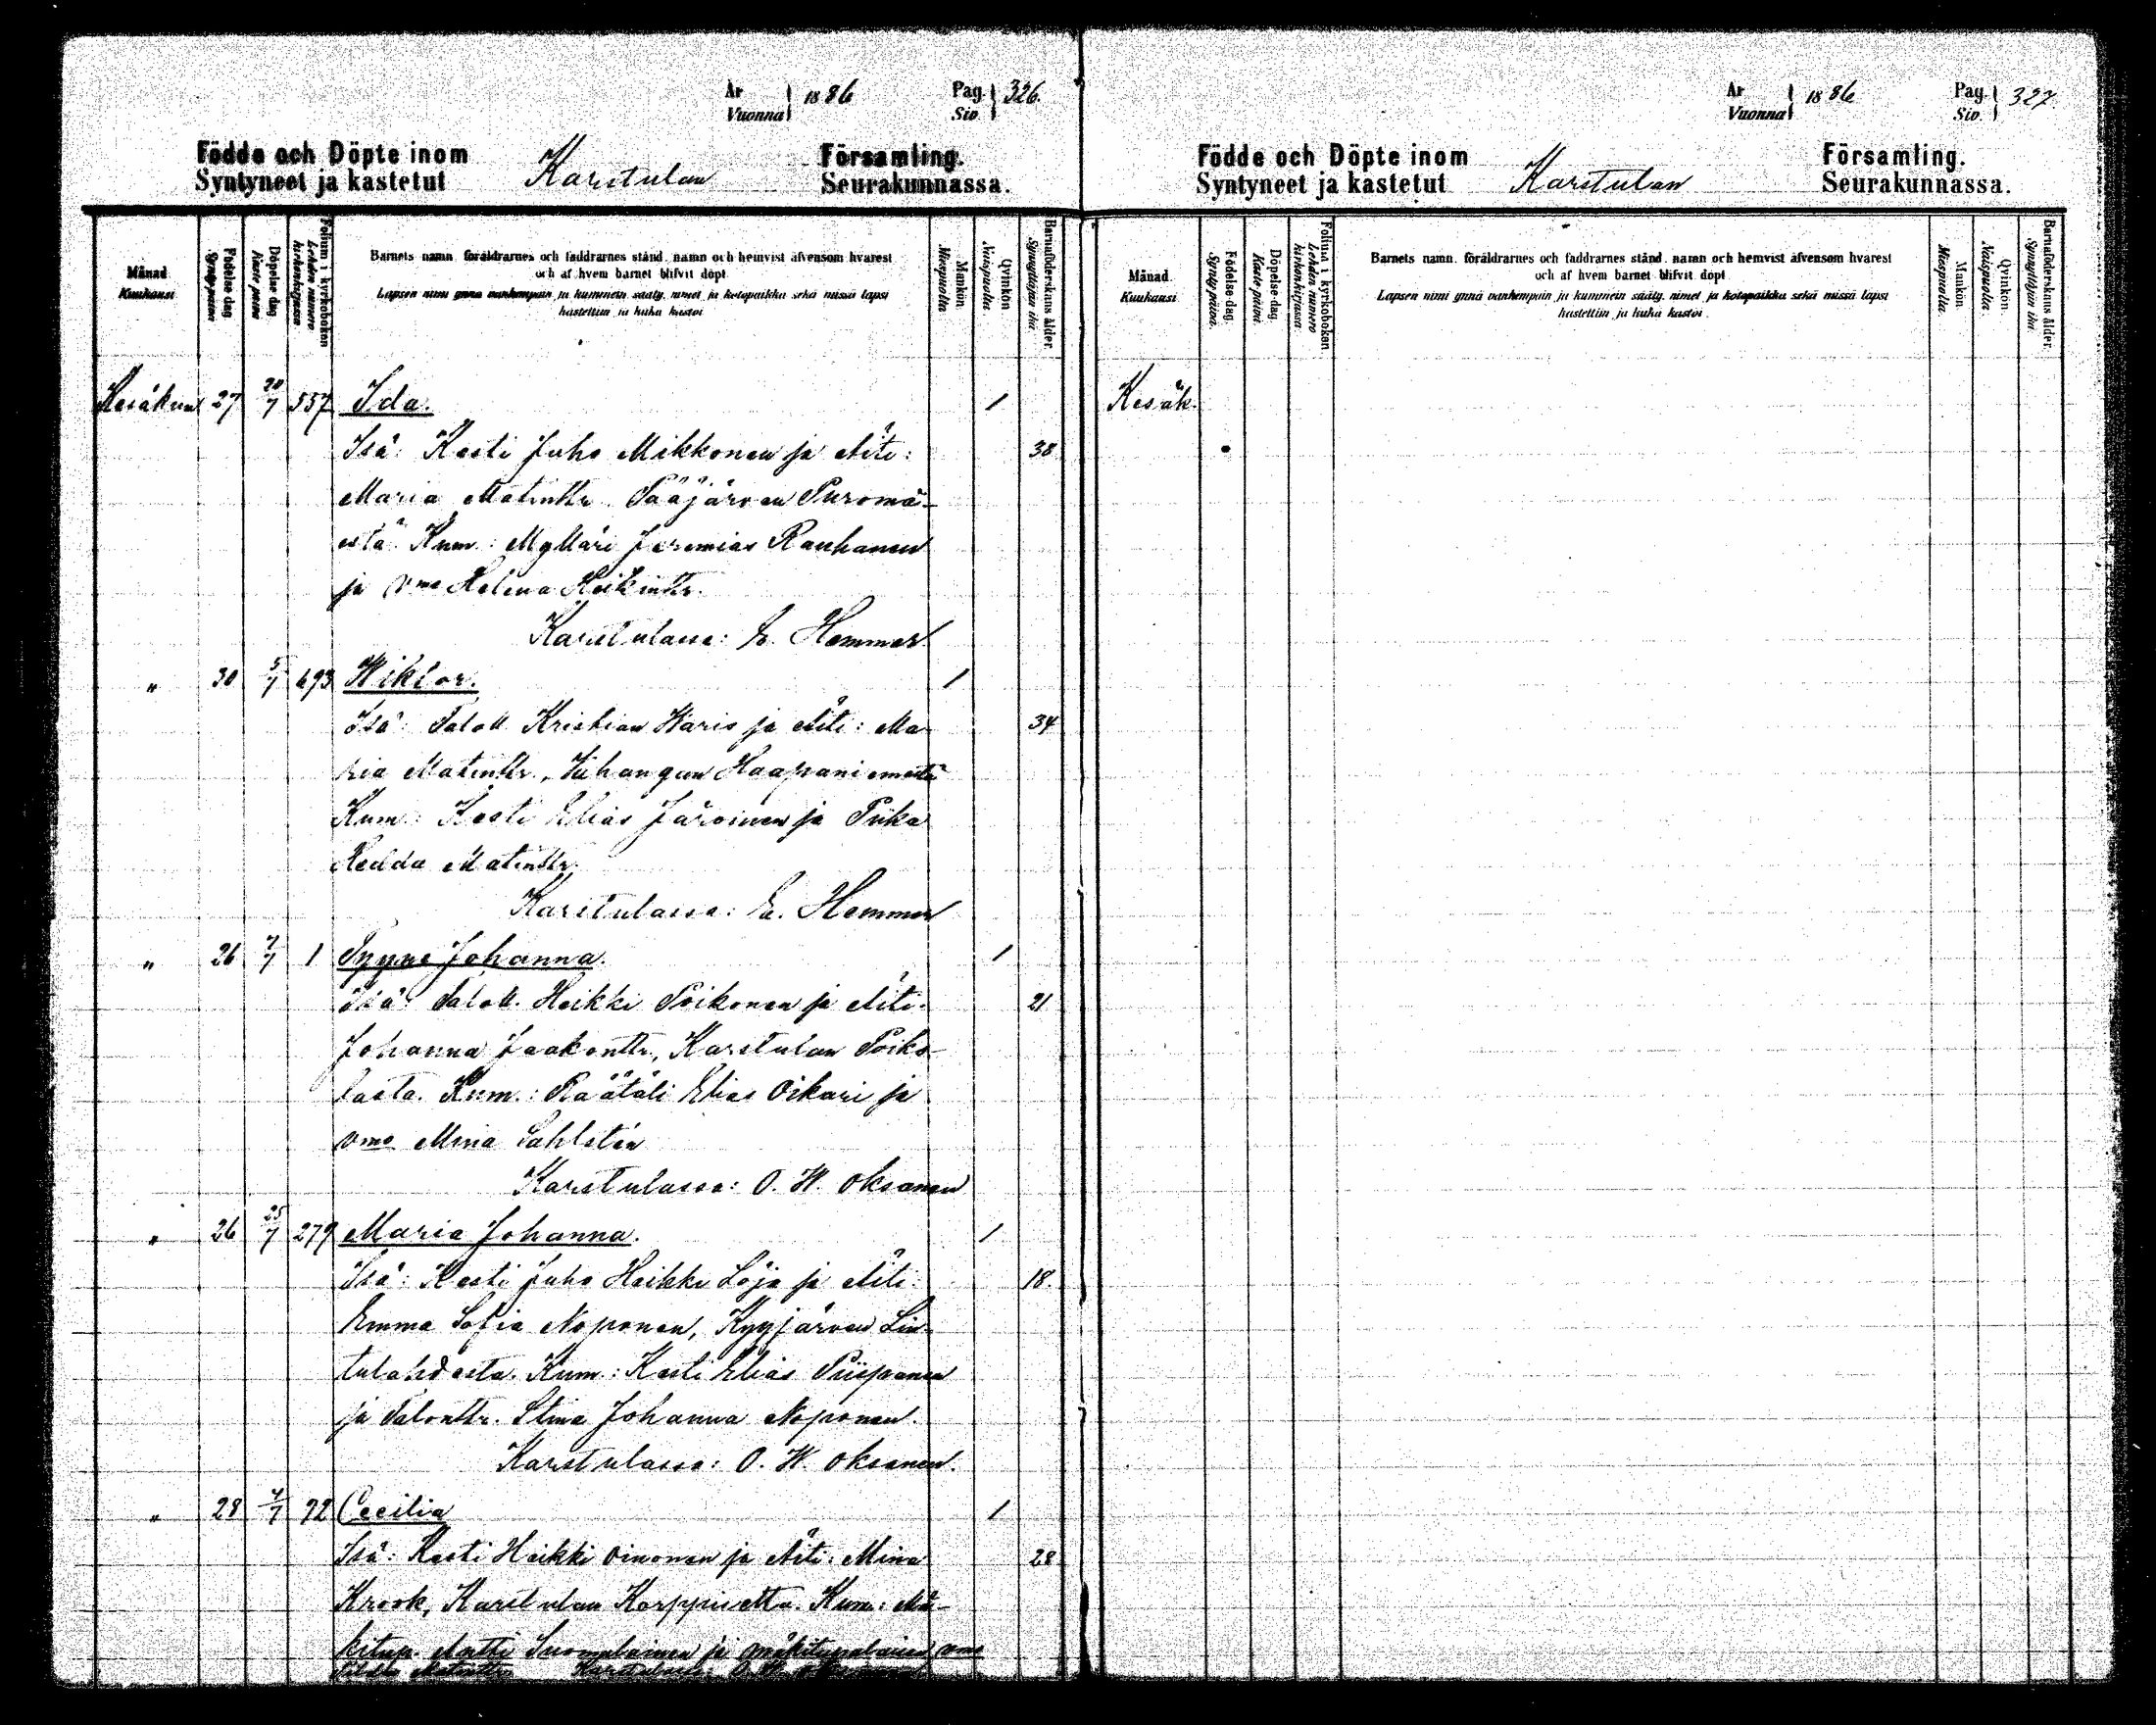 År Vuonna 1886 Pag. Siv. 326.
Födde och Döpte inom Karstulan Församling.
Syntyneet ja kastetut Seurakunnassa.
Månad. Kuukausi
Födelse dag. Synty päivä
Döpelse dag Kaste päivä
Folium i kyrkobokan Lehden numero kirkonkirjassa
Barnets namn, föräldrarnes och faddrarnes stånd, namn och hemvist äfvensom hvarest
och af hvem barnet blifvit döpt.
Lapsen nimi ynnä vanhempain ja kummein sääty, nimet ja kotopaikka sekä missä lapsi
kastettiin ja kuka kastoi
Mankön Miespuolia
Qvinkön Naispuolia
Barnaföderskans ålder. Synnyttäjän ikä
Kesäkuu 27 20/7 557 Ida. 1
Isä: Kesti Juho Mikkonen ja Äiti: 38
Maria Matintr. Pääjärven Puromä-
estä. Kum.: Mylläri Jeremias Rauhanen
ja vmo Helena Heikintr.
Karstulassa: E. Hemmer
" 30 5/7 693 Wiktor. 1
Isä: Taloll. Kristian Waris ja Äiti: Ma- 34
ria Matintr., Wahangan Haapaniemestä
Kum.: Kesti Elias Järvinen ja Piika
Hedda Matintr.
Karstulassa: E. Hemmer
" 26 7/7 1 Tyyne Johanna. 1
Isä: Taloll. Heikki Poikonen ja Äiti: 21
Johanna Jaakontr., Karstulan Poiko-
lasta. Kum.: Räätäli Elias Oikari ja
vmo Mina Sahlstén
Karstulassa: O. W. Oksanen
" 26 25/7 279 Maria Johanna. 1
Isä: Kesti Juho Heikki Löja ja Äiti: 18.
Emma Sofia Noponen, Kyyjärven Lin-
tulahdesta. Kum.: Kesti Elias Piispanen
ja Talontr. Stina Johanna Noponen.
Karstulassa: O. W. Oksanen.
" 28 4/7 92 Cecilia 1
Isä: Kesti Heikki Oinonen ja Äiti: Mina 28
Krook, Karstulan Korppisetta. Kum.: Mä-
kitup. Antti Suomalainen ja mäkitupalaisen vmo
Matintr. Karstulassa: O. W. Oksanen
År Vuonna 1886 Pag. Siv. 327
Födde och Döpte inom Karstulan Församling.
Syntyneet ja kastetut Seurakunnassa.
Månad. Kuukausi
Födelse-dag. Synty päivä.
Döpelse-dag. Kaste päivä.
Folium i kyrkobokan Lehden numero kirkonkirjassa.
Barnets namn, föräldrarnes och faddrarnes stånd, namn och hemvist äfvensom hvarest
och af hvem barnet blifvit döpt.
Lapsen nimi ynnä vanhempain ja kummein sääty, nimet ja kotopaikka sekä missä lapsi
kastettiin ja kuka kastoi.
Mankön. Miespuolia.
Qvinkön. Naispuolia.
Barnaföderskans ålder. Synnyttäjän ikä.
Kesäk.